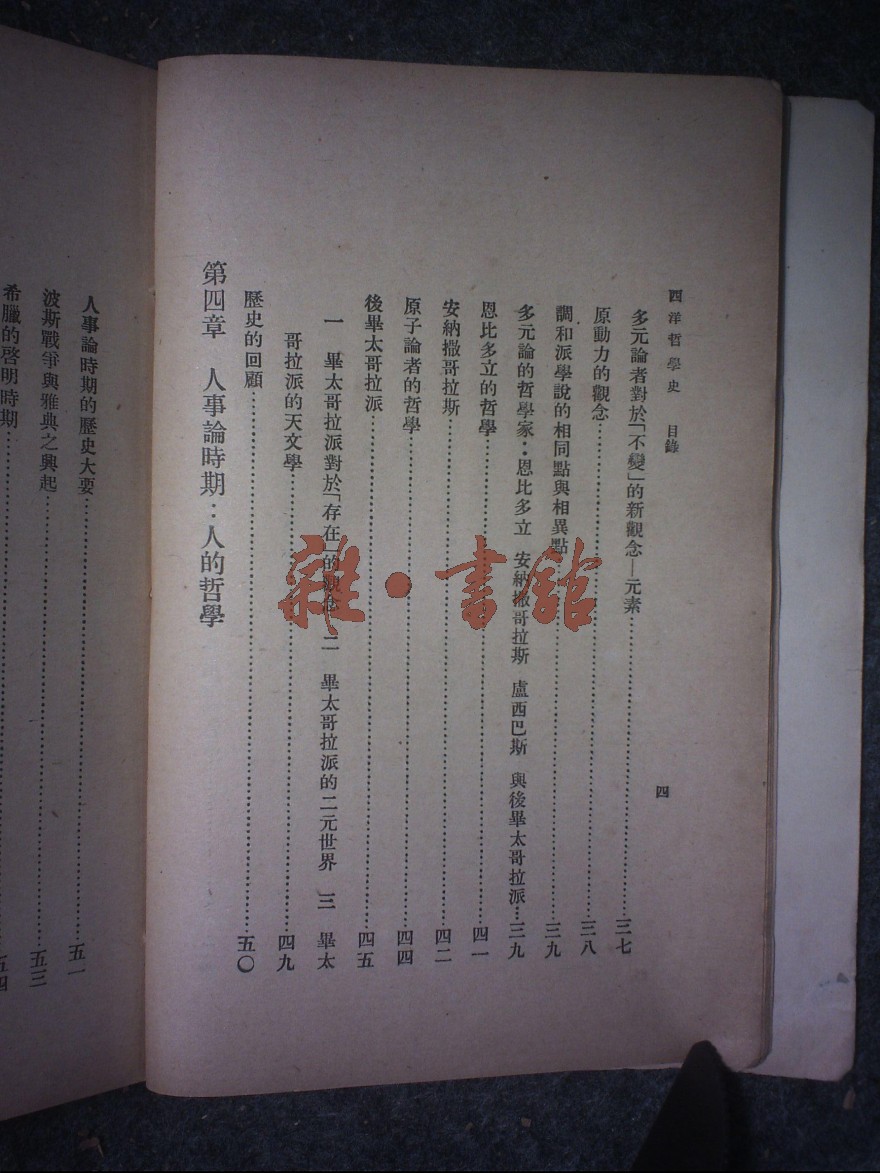 西洋哲學史 目錄 四
多元論者對於「不變」的新觀念—元素……三七
原動力的觀念……三八
調和派學說的相同點與相異點……三九
多元論的哲學家：恩比多立 安納撒哥拉斯 盧西巴斯 與後畢太哥拉派…三九
恩比多立的哲學……四一
安納撒哥拉斯……四二
原子論者的哲學……四四
後畢太哥拉派……四五
一 畢太哥拉派對於「存在」的觀念 二 畢太哥拉派的二元世界 三 畢太
哥拉派的天文學……四九
歷史的回顧……五〇
第四章 人事論時期：人的哲學
人事論時期的歷史大要……五一
波斯戰爭與雅典之興起……五三
希臘的啓明時期……五四
雜·書館